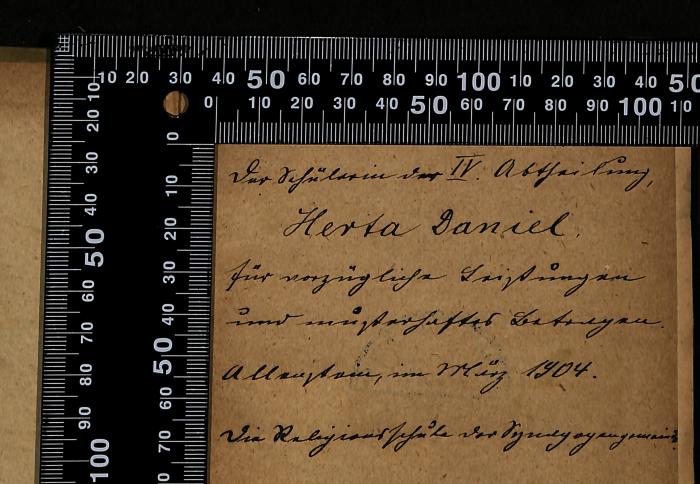 10 20 30 40 50 60 70 80 90 100 10 20 30 40 50
0 10 20 30 40 50 60 70 80 90 100 10
10 20 30 40 50 60 70 80 90 100
0 10 20 30 40 50 60 70
Der Schülerin der IV. Abtheilung,
Herta Daniel.
für vorzügliche Leistungen
und musterhaftes Betragen.
Allenstein, im März 1904.
Die Religionsschule der Synagogengemeinde